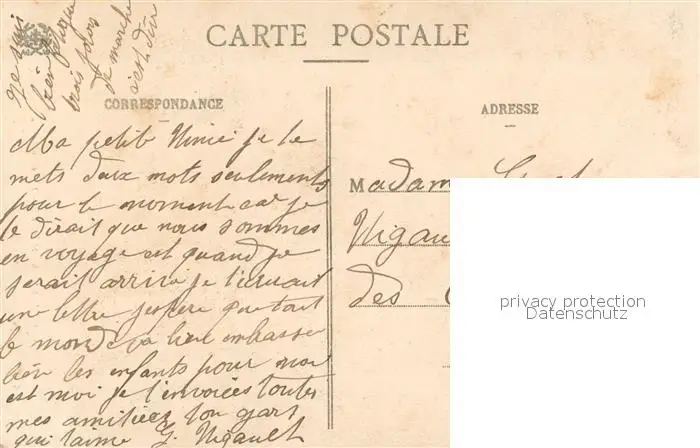 je suis
bien
trois jours
de marche
c'est dur
CARTE POSTALE
CORRESPONDANCE
Ma petite Ninie je te
mets deux mots seulements
pour le moment car je
te dirait que nous sommes
en voyage et quand je
serait arrivé je t'ecrirait
une lettre j'espere que tout
le monde va bien embrasse
bien les enfants pour moi
est moi je t'envoies toutes
mes amitiées ton gars
qui t'aime G. Nigault
ADRESSE
Madam
Nigau
des
privacy protection
Datenschutz